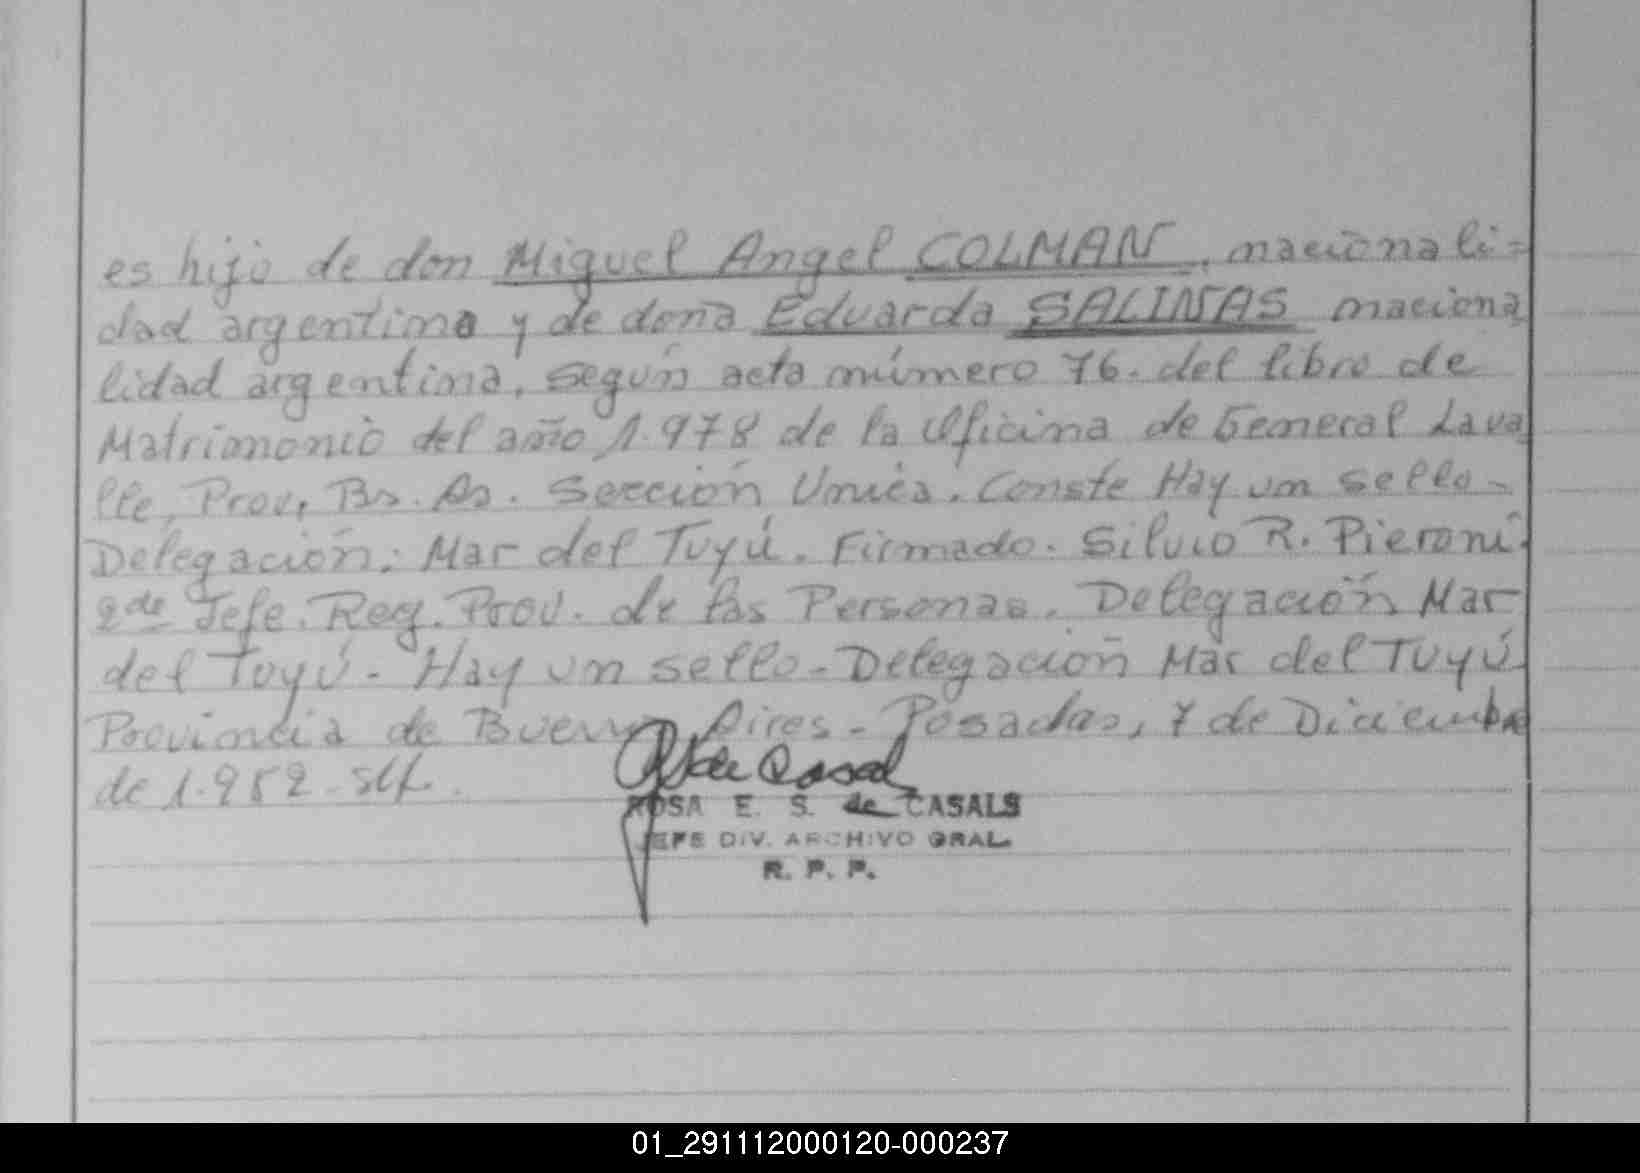 es hijo de don Miguel Angel COLMAN, nacionali=
dad argentina y de doña Eduarda SALINAS naciona
lidad argentina, según acta número 76. del libro de
Matrimonio del año 1.978 de la Oficina de General Lava
lle, Prov, Bs. As. Sección Unica. Conste Hay un sello-
Delegación: Mar del Tuyú. Firmado. Silvio R. Pieroni.
2de Jefe. Reg. Prov. de las Personas. Delegación Mar
del Tuyú - Hay un sello - Delegación Mar del Tuyú
Provincia de Buenos Aires - Posadas, 7 de Diciembre
de 1.982
ROSA E. S. de CASALS
JEFE DIV. ARCHIVO GRAL.
R. P. P.
01_291112000120-000237